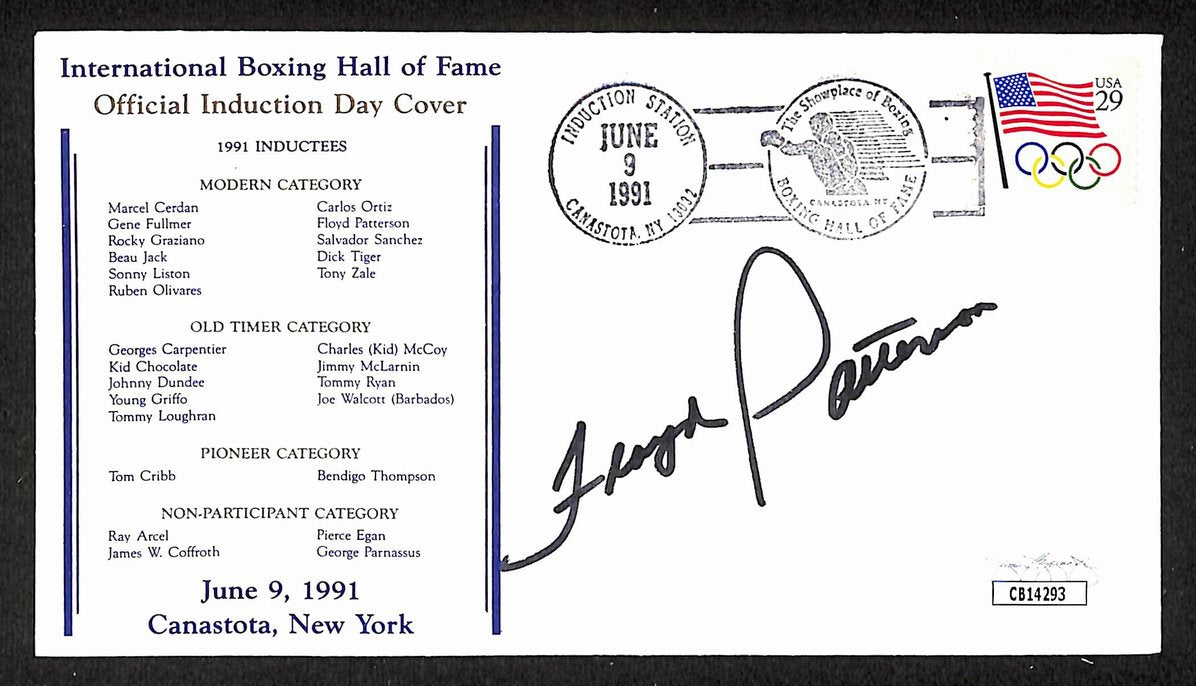 International Boxing Hall of Fame
Official Induction Day Cover
1991 INDUCTEES
MODERN CATEGORY
Marcel Cerdan
Gene Fullmer
Rocky Graziano
Beau Jack
Sonny Liston
Ruben Olivares
Carlos Ortiz
Floyd Patterson
Salvador Sanchez
Dick Tiger
Tony Zale
OLD TIMER CATEGORY
Georges Carpentier
Kid Chocolate
Johnny Dundee
Young Griffo
Tommy Loughran
Charles (Kid) McCoy
Jimmy McLarnin
Tommy Ryan
Joe Walcott (Barbados)
PIONEER CATEGORY
Tom Cribb
Bendigo Thompson
NON-PARTICIPANT CATEGORY
Ray Arcel
James W. Coffroth
Pierce Egan
George Parnassus
June 9, 1991
Canastota, New York
INDUCTION STATION
JUNE
9
1991
CANASTOTA, NY 13032
The Showplace of Boxing
CANASTOTA, NY
BOXING HALL OF FAME
USA
29
Floyd Patterson
CB14293